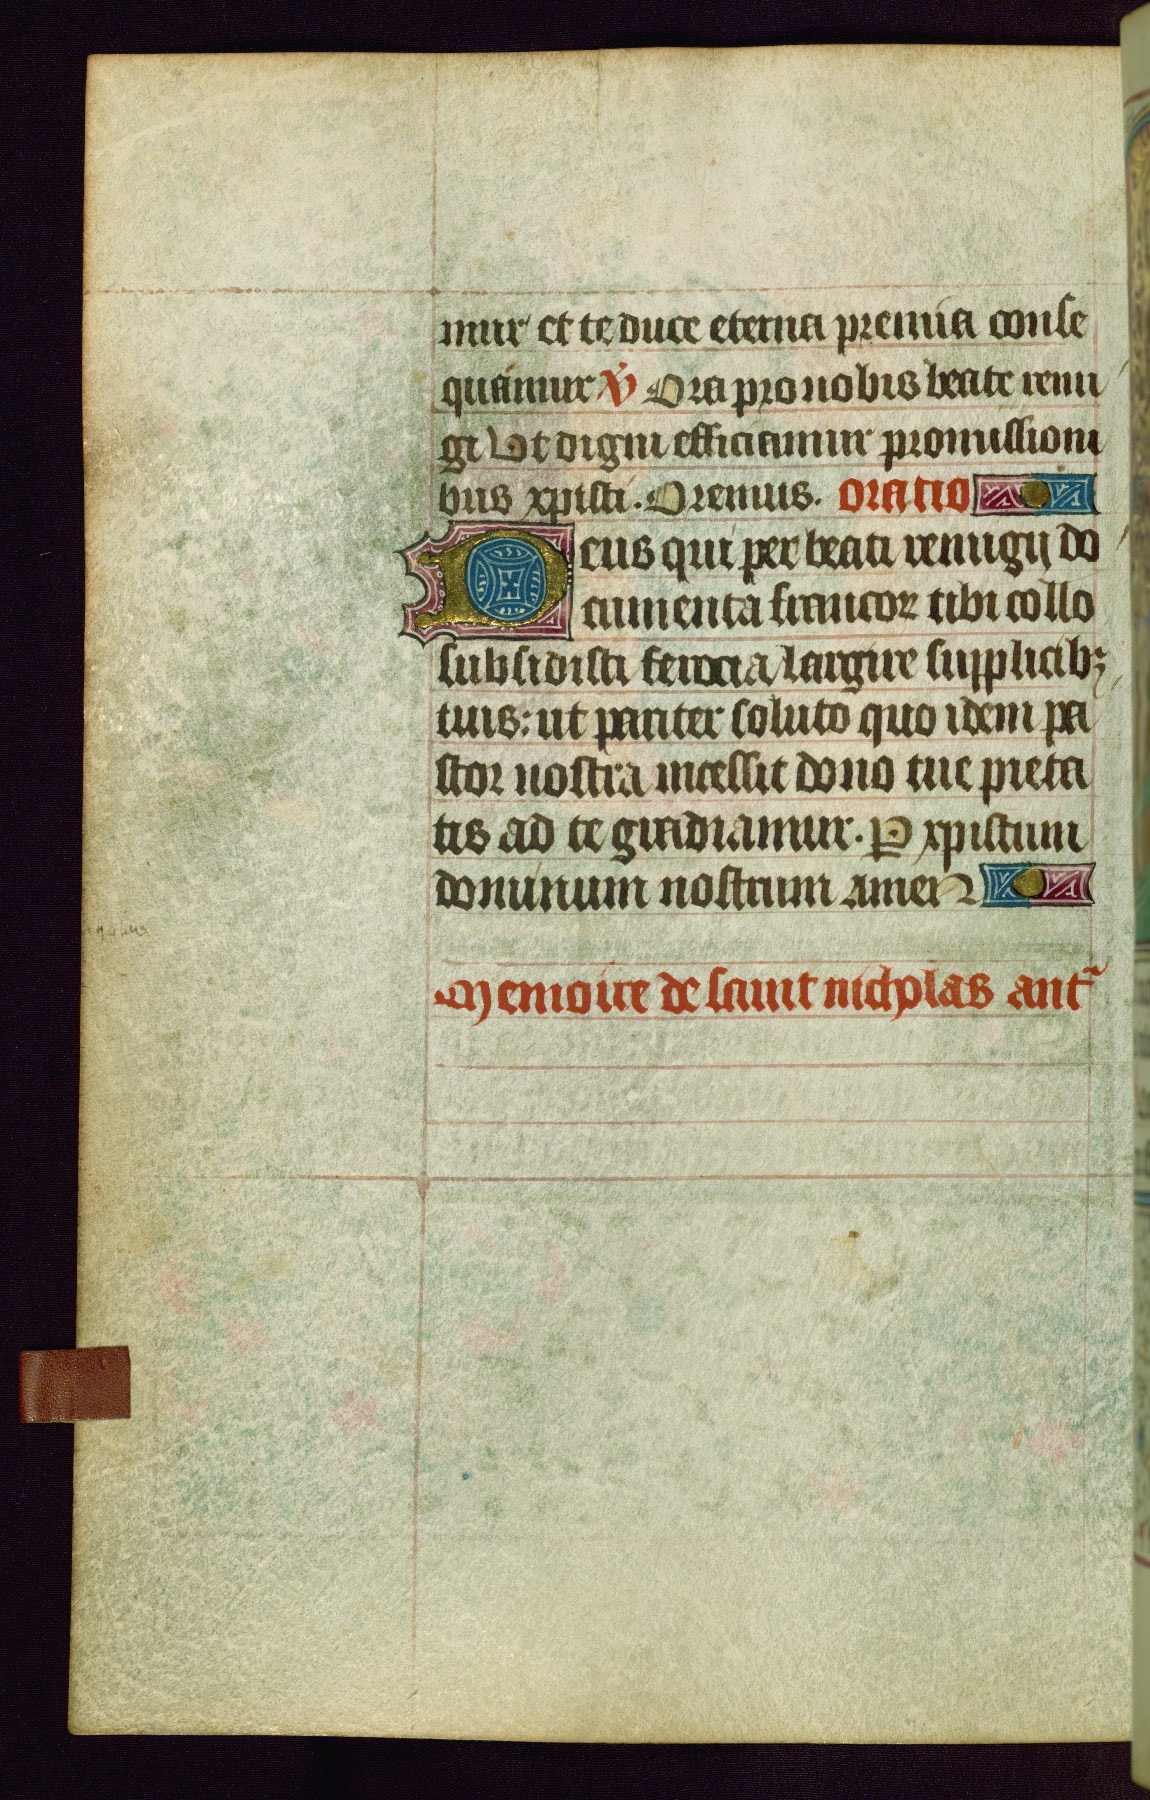 mur et te duce eterna premia conse
quamur V Ora pro nobis beate remi
gi Ut digni efficiamur promissioni
bus xpisti. Oremus. Oratio
Deus qui per beati remigij do
cumenta francoꝝ tibi collo
subsidisti ferocia largire supplicibꝫ
tuis: ut pariter soluto quo idem pa
stor nostra incessit dono tue pieta
tis ad te gradiamur. P xpistum
dominum nostrum Amen
Memoire de saint nicholas ant